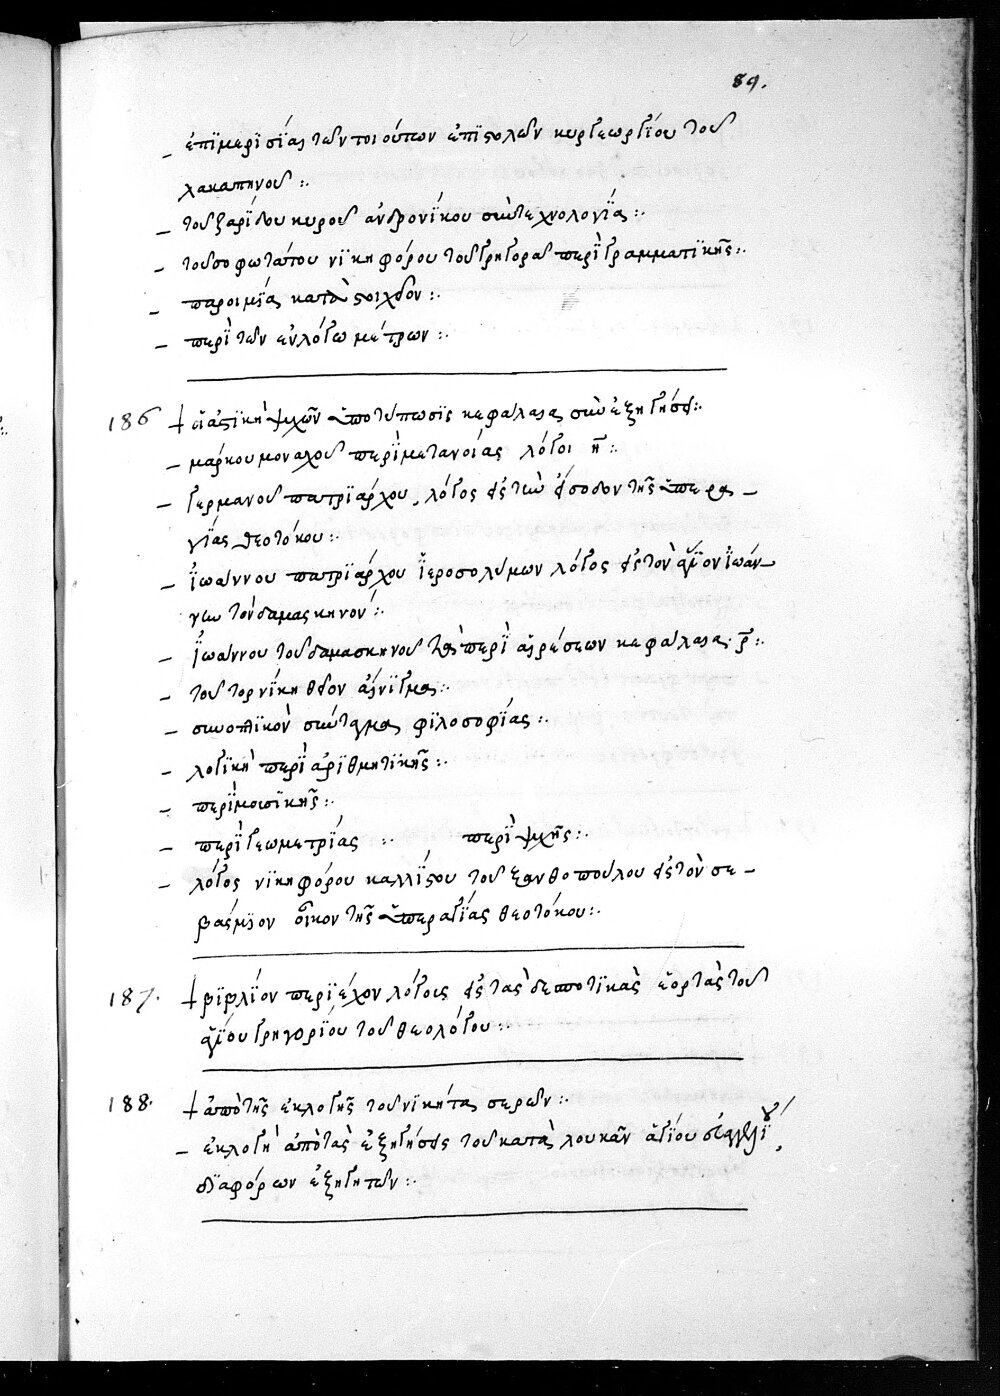 89.
– ἐπϊμερϊσίας τῶν τοιούτων ἐπϊστολῶν κυρ γεωργΐου τοῦ
λακαπηνοῦ :.
– τοῦ ζαρΐδου κυροῦ ἀνδρονΐκου σὺν τεχνολογΐα :.
– τοῦ σοφωτάτου νϊκηφόρου τοῦ γρηγορᾶ περῒ γραμματϊκῆς :.
– παροιμΐας κατὰ στοιχεῖον :.
– περῒ τῶν ἐν λόγω μέτρων :.
186 + ϋποτύπωσϊς κεφάλαια σὺν ἐξηγήσει :.
– μάρκου μοναχοῦ περῒ μετανοίας λόγοι η̄ :.
– γερμανοῦ πατρϊάρχου, λόγος εἰς τὴν εἴσοδον τῆς ὑπερα –
γΐας θεοτόκου :.
– Ϊωάννου πατρϊάρχου ϊεροσολύμων λόγος εἰς τὸν ἅγϊον ϊωάν–
νην τὸν δαμασκηνόν :.
– Ϊωάννου τοῦ δαμασκηνοῦ τὰ περῒ αἱρέσεων κεφάλαια ρ̄ :.
– τοῦ τορνΐκη θεῖον αἴνϊγμα :.
– συνοπτϊκὸν σύνταγμα φϊλοσοφΐας :.
– λογϊκὴ περῒ ἀρϊθμητϊκῆς :.
– περῒ μουσϊκῆς :.
– περῒ γεωμετρΐας :. περῒ ψυχῆς :.
– λόγος νϊκηφόρου καλλΐστου τοῦ ξανθοπούλου εἰς τὸν σε –
βάσμϊον οἶκον τῆς ὑπεραγΐας θεοτόκου :.
187. + βϊβλΐον περϊέχον λόγους εἰς τὰς δεσποτϊκὰς ἑορτὰς τοῦ
ἁγΐου γρηγορΐου τοῦ θεολόγου :.
188. + ἀπὸ τῆς ἐκλογῆς τοῦ νϊκήτας σερῶν :.
– ἐκλογὴ ἀπὸ τὰς ἐξηγήσεις τοῦ κατὰ λουκᾶν ἁγΐου εὐαγγελΐου,
δϊαφόρων ἐξηγητῶν :.